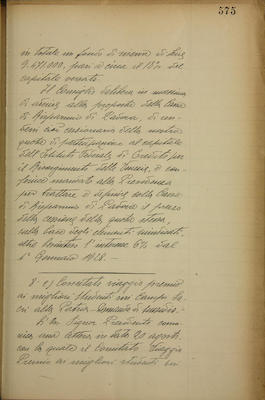 575
in totale un fondo di riserva di Lire
9.471.000, pari a circa il 18% del
capitale versato.
Il Consiglio delibera in massima
di aderire alla proposta della Cassa
di Risparmio di Padova di
 della nostra
quota di partecipazione al capitale
dell'Istituto Federale di Credito per
il Risorgimento delle Venezie, e
 mandato alla Presidenza
per trattare e definire colla Cassa
di Risparmio di Padova il prezzo
della cessione della quota stessa,
sulla base degli elementi suindicati,
oltre l'interesse 6% dal
1° Gennaio 1928.-
8° e) Comitato viaggio premio
ai migliori studenti in campi
della Patria - Domanda di sussidio.-
Il Signor Presidente comu-
nica una lettera in data 20 agosto
con la quale il Comitato Viaggio
Premio ai migliori studenti in